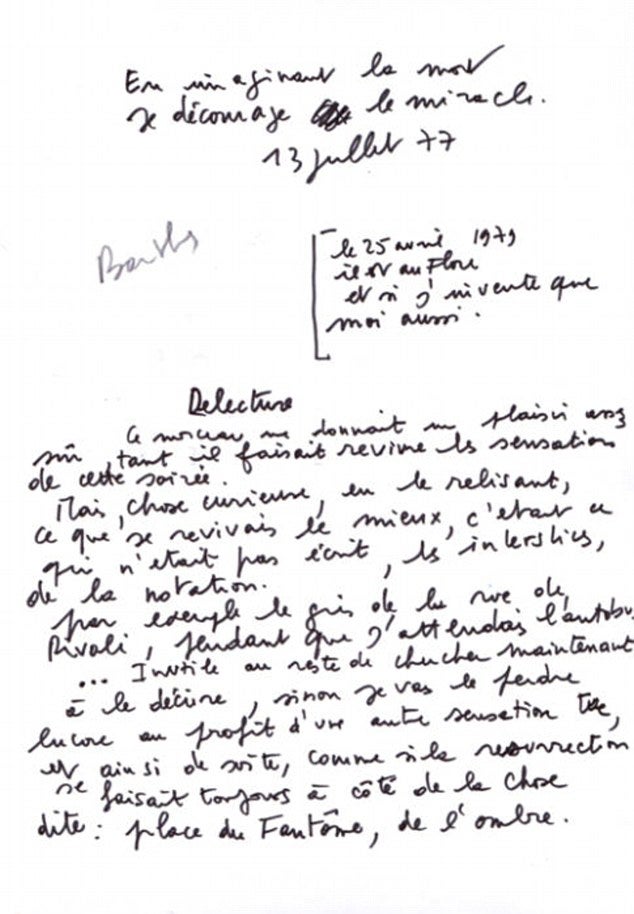 En imaginant la mort
je décourage le miracle.
13 juillet 77
Barthes
le 25 avril 1979
il est au Flore
et si j'invente que
moi aussi.
Delecture
Ce morceau me donnait un plaisir assez
sûr, tant il faisait revivre les sensations
de cette soirée.
Mais, chose curieuse, en le relisant,
ce que je revivais le mieux, c'était ce
qui n'était pas écrit, les interstices,
de la notation.
par exemple le gris de la rue de
Rivoli, pendant que j'attendais l'autobus
... Inutile au reste de chercher maintenant
à le décrire, sinon je vas le perdre
encore au profit d'une autre sensation tue,
et ainsi de suite, comme si la résurrection
se faisait toujours à côté de la chose
dite : place du Fantôme, de l'ombre.